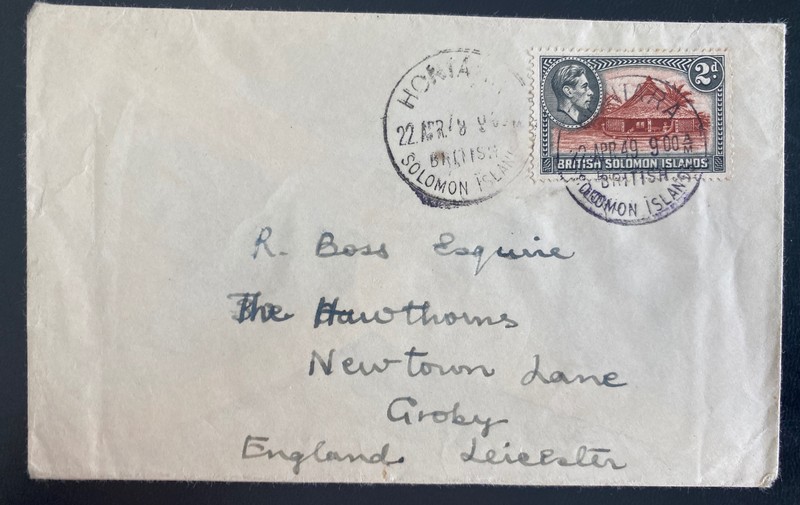 HONIA
22 APR 49 9
BRITISH
SOLOMON ISLAN
2d
BRITISH SOLOMON ISLANDS
NIARA
22 APR 49 9 00 A
BRITISH
SOLOMON ISLAND
R. Boss Esquire
The Hawthorns
Newtown Lane
Groby
England Leicester